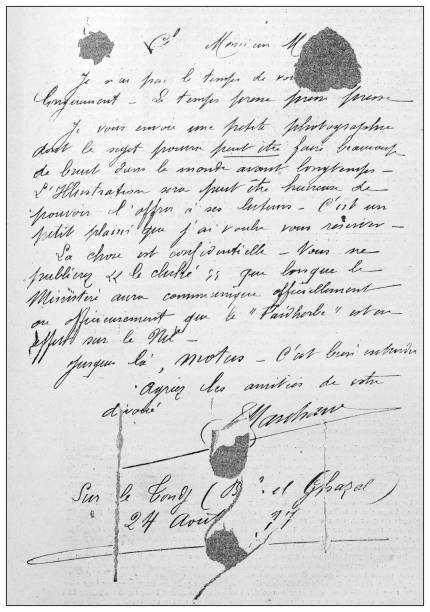 Monsieur M
Je n'ai pas le temps de vous
longuement — Le temps presse presse presse
Je vous envoie une petite photographie
dont le sujet pourra peut être faire beaucoup
de bruit dans le monde avant longtemps —
L'Illustration sera peut être heureuse de
pouvoir l'offrir à ses lecteurs — C'est un
petit plaisir que j'ai voulu vous réserver —
La chose est confidentielle — Vous ne
publierez « le cliché » que lorsque le
Ministère aura communiqué officiellement
ou officieusement que le "Faidherbe" est en
effet sur le Nil —
Jusque là, motus — C'est bien entendu
Agréez les amitiés de votre
dévoué
Marchand
Sur le Tondj (B el Ghazal)
24 Août 97